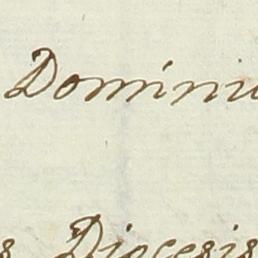 Domini
s Diocesis